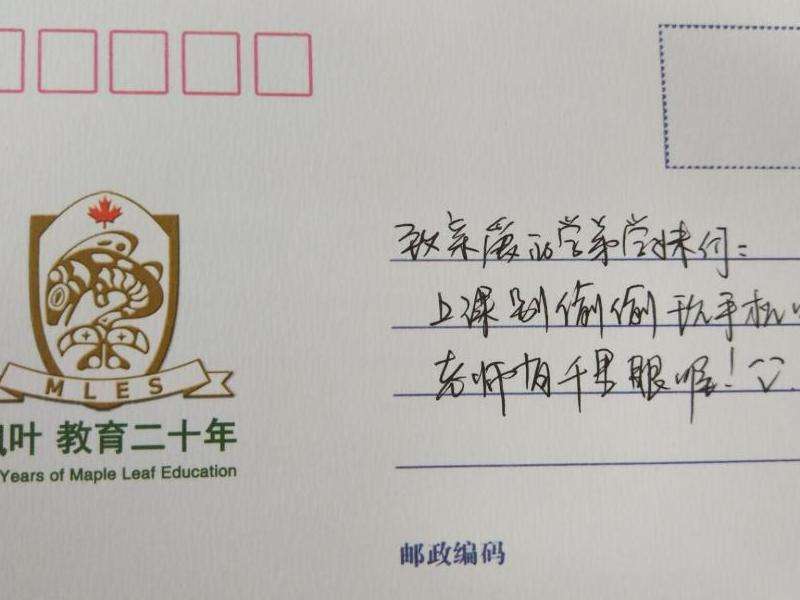 MLES
叶 教育二十年
Years of Maple Leaf Education
致亲爱的学弟学妹们：
上课别偷偷玩手机
老师有千里眼喔！
邮政编码